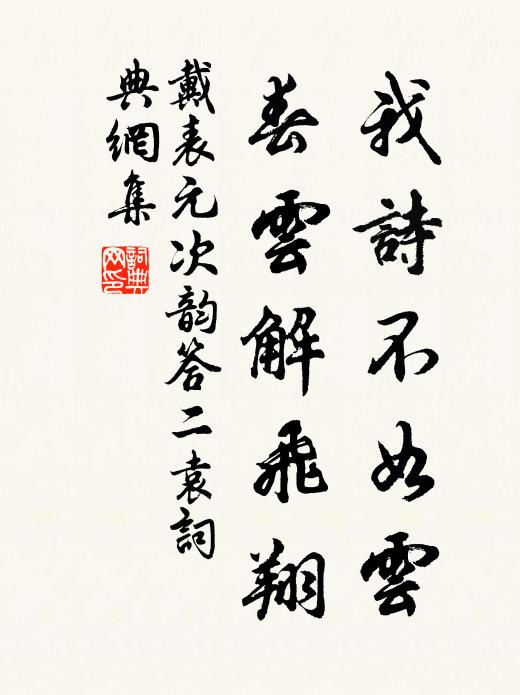 我詩不如雲
春雲解飛翔
戴表元次韵答二袁詞
典網集
詞典
网印